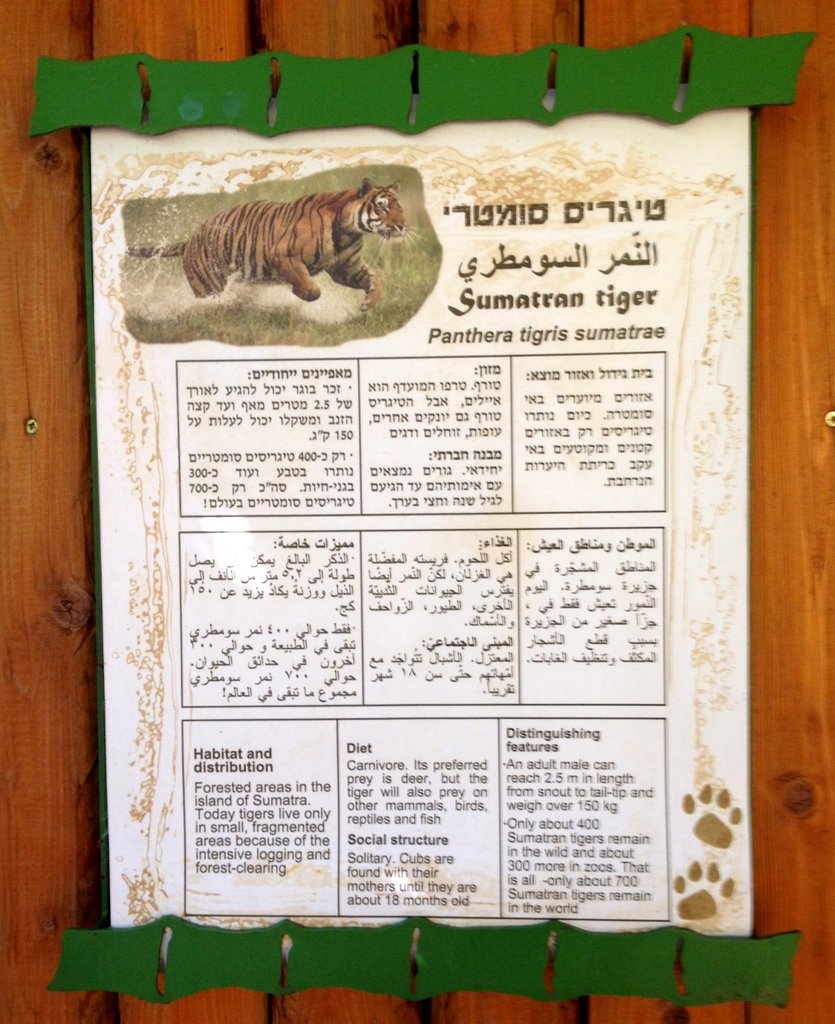 טיגריס סומטרי
النّمر السومطري
Sumatran tiger
Panthera tigris sumatrae
בית גידול ואזור מוצא:
אזורים מיוערים באי
סומטרה. כיום נותרו
טיגריסים רק באזורים
קטנים ומקוטעים באי
עקב כריתת היערות
הנרחבת.
מזון:
טורף. טרפו המועדף הוא
איילים, אבל הטיגריס
טורף גם יונקים אחרים,
עופות, זוחלים ודגים
מבנה חברתי:
יחידאי. גורים נמצאים
עם אימותיהם עד הגיעם
לגיל שנה וחצי בערך.
מאפיינים ייחודיים:
· זכר בוגר יכול להגיע לאורך
של 2.5 מטרים מאף ועד קצה
הזנב ומשקלו יכול לעלות על
150 ק"ג.
· רק כ-400 טיגריסים סומטריים
נותרו בטבע ועוד כ-300
בגני-חיות. סה"כ רק כ-700
טיגריסים סומטריים בעולם!
الموطن ومناطق العيش:
المناطق المشجّرة في
جزيرة سومطرة. اليوم
النّمور تعيش فقط في ،
جزأ صغير من الجزيرة
بسبب قطع الأشجار
المكثّف وتنظيف الغابات.
الغذاء:
أكل اللحوم. فريسته المفضّلة
هي الغزلان، لكن النّمر أيضًا
يفترس الحيوانات الثدييّة
الأخرى، الطيور، الزّواحف
والأسماك.
المبنى الاجتماعيّ:
المعتزل. الأشبال تتواجد مع
أمّهاتهم حتّى سن ١٨ شهر
تقريبًا.
مميزات خاصة:
·الذكر البالغ يمكن أن يصل
طولة إلى ٥,٢ متر من الأنف إلى
الذيل ووزنة يكاد يزيد عن ١٥٠
كج.
·فقط حوالي ٤٠٠ نمر سومطري
تبقى في الطبيعة و حوالي ٣٠٠
آخرون في حدائق الحيوان.
حوالي ٧٠٠ نمر سومطري
مجموع ما تبقى في العالم!
Habitat and
distribution
Forested areas in the
island of Sumatra.
Today tigers live only
in small, fragmented
areas because of the
intensive logging and
forest-clearing
Diet
Carnivore. Its preferred
prey is deer, but the
tiger will also prey on
other mammals, birds,
reptiles and fish
Social structure
Solitary. Cubs are
found with their
mothers until they are
about 18 months old
Distinguishing
features
·An adult male can
reach 2.5 m in length
from snout to tail-tip and
weigh over 150 kg
·Only about 400
Sumatran tigers remain
in the wild and about
300 more in zoos. That
is all -only about 700
Sumatran tigers remain
in the world